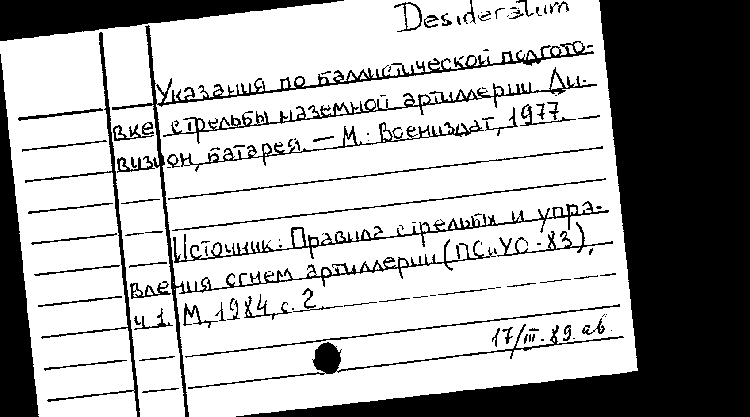 Desideratum
Указания по баллистической подгото-
вке стрельбы наземной артиллерии. Ди-
визион, батарея. — М.: Воениздат, 1977.
Источник: Правила стрельбы и упра-
вления огнем артиллерии (ПСиУО-83),
ч 1. М, 1984, с. 2.
17/III-89 ав.